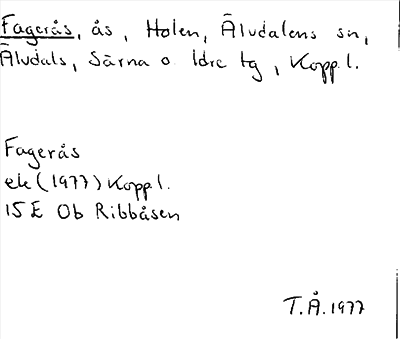 Fagerås, ås, Holen, Älvdalens sn,
Älvdals, Särna o Idre tg, Kopp.l.
Fagerås
ek (1977) Kopp l.
15 E Ob Ribbåsen
T.Å.1977